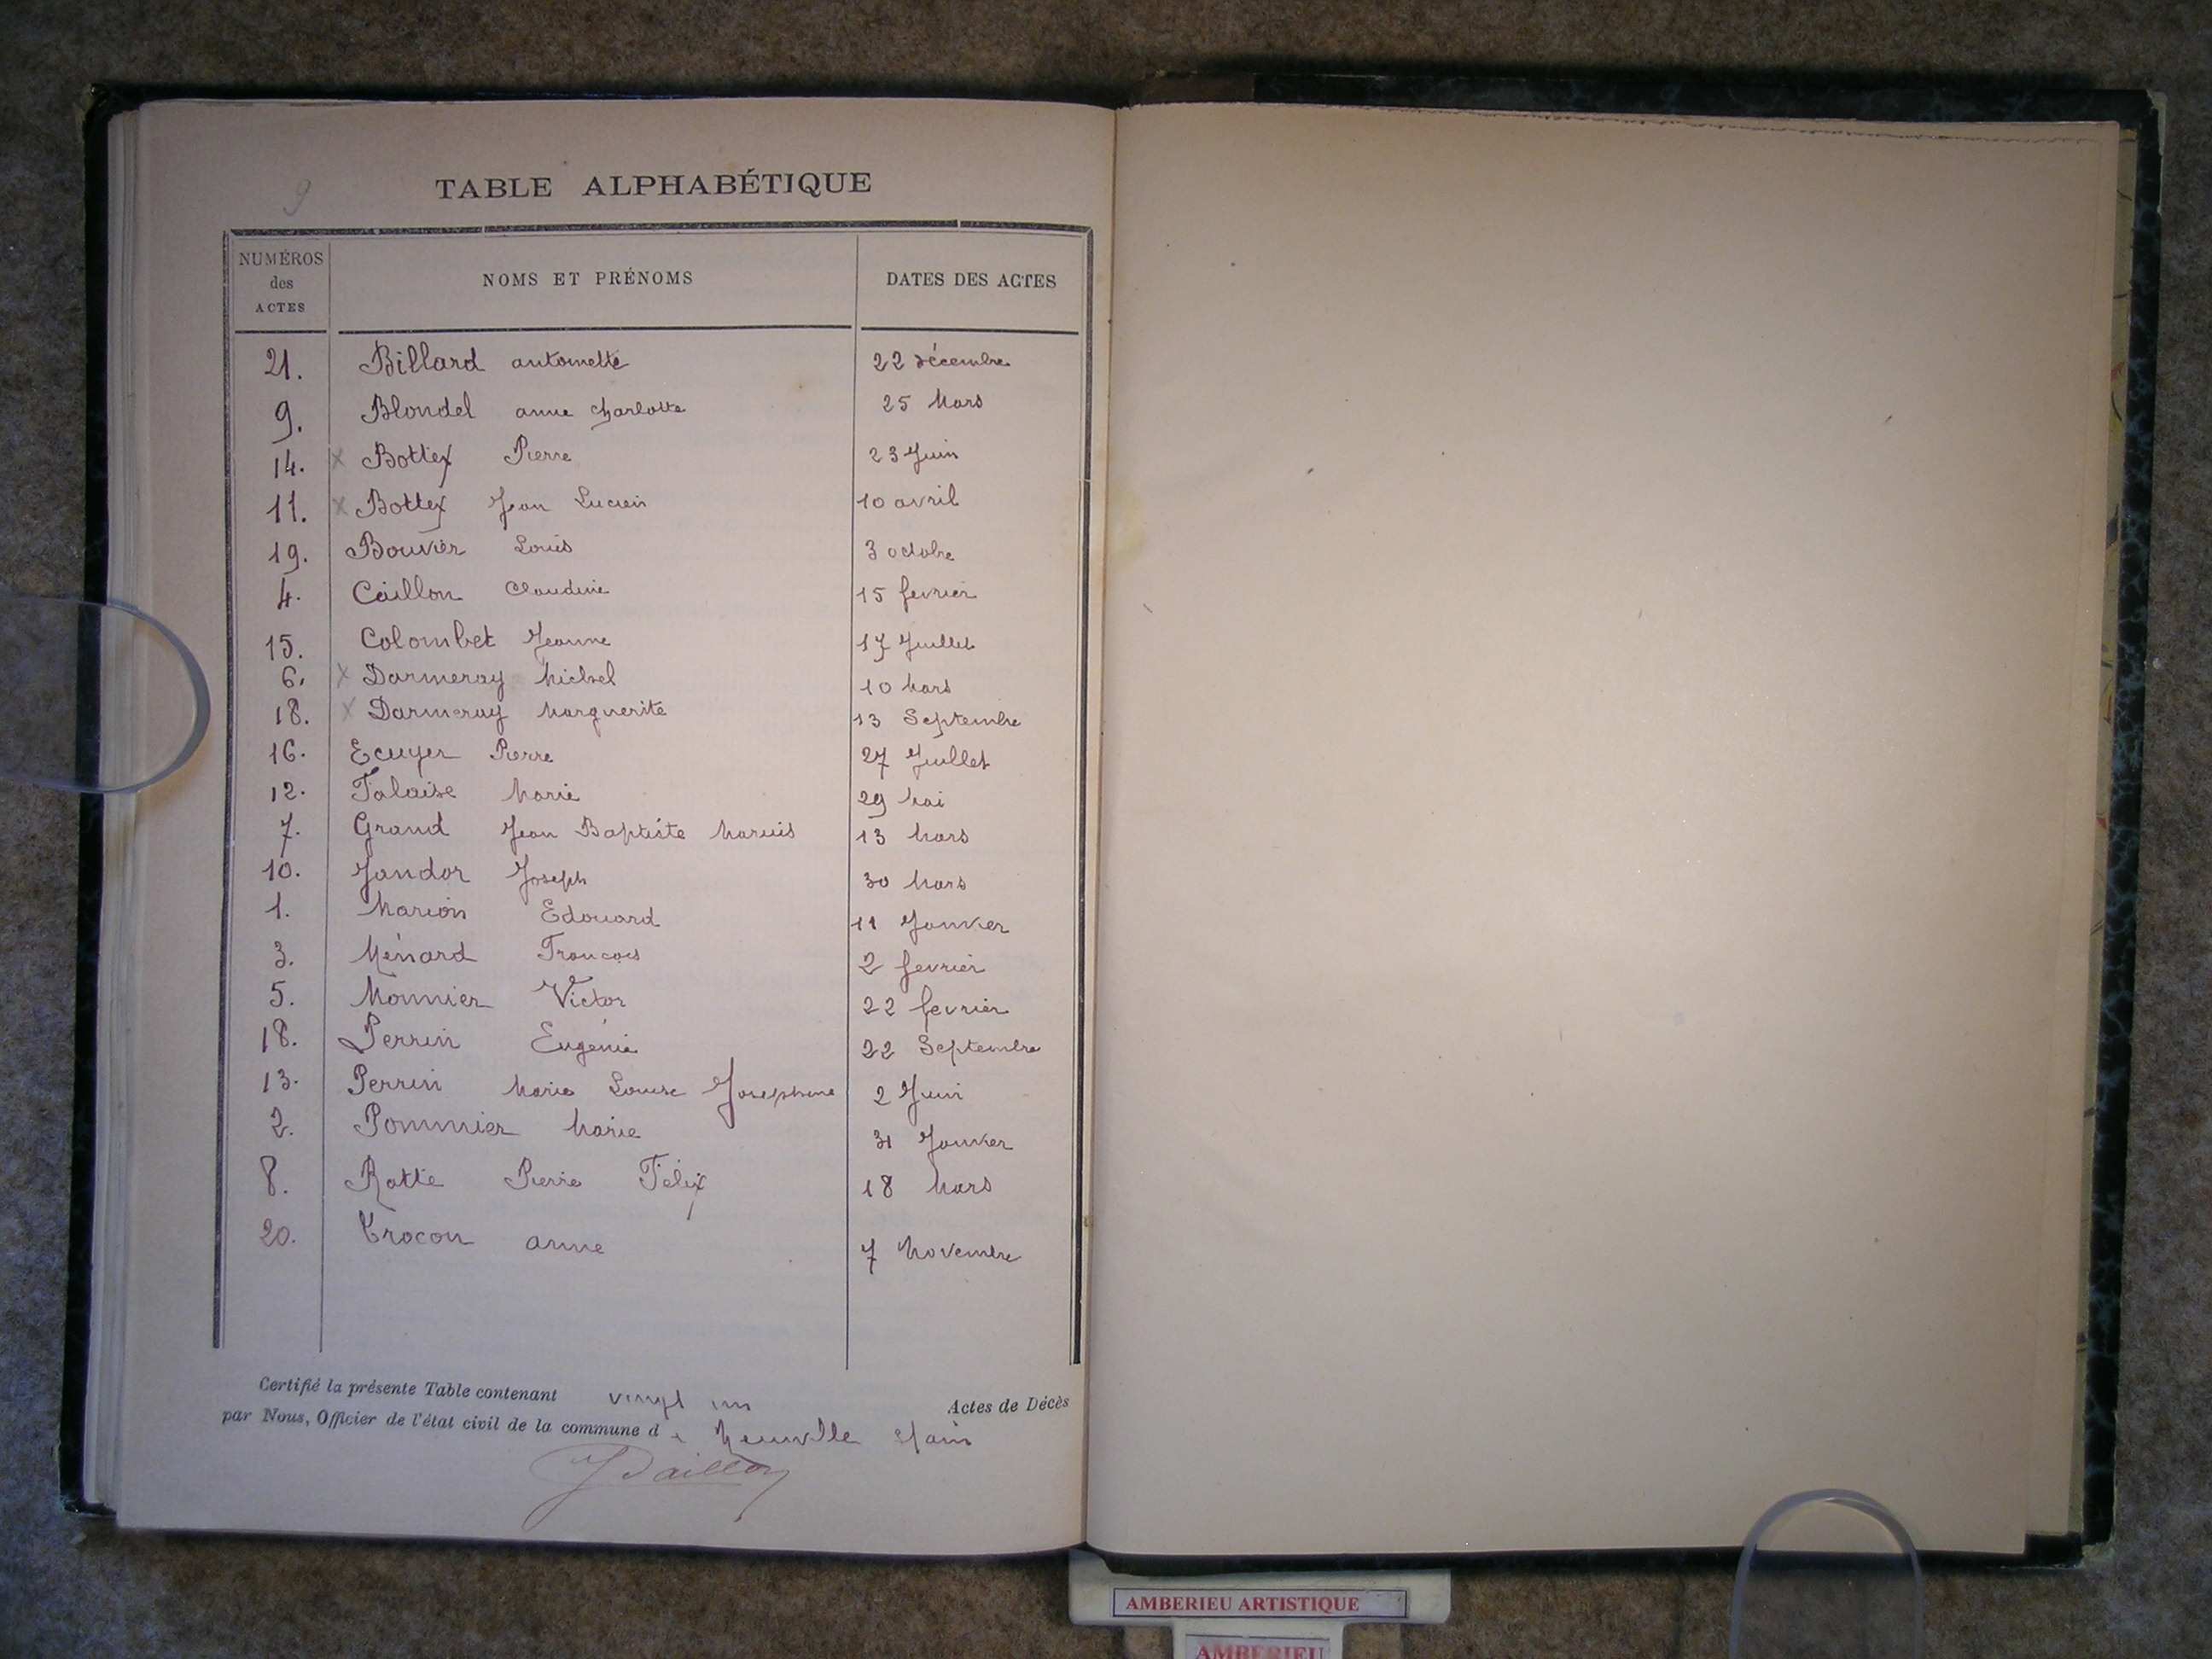 9
TABLE ALPHABÉTIQUE
NUMÉROS des ACTES NOMS ET PRÉNOMS DATES DES ACTES
21. Billard antoinette 22 décembre
9. Blondel anne charlotte 25 Mars
14. x Bottex Pierre 23 Juin
11. x Bottex Jean Lucien 10 avril
19. Bouvier Louis 3 octobre
4. Caillon Claudine 15 fevrier
15. Colombet Jeanne 17 Juillet
6. x Darmeray Michel 10 Mars
18. x Darmeray Marguerite 13 Septembre
16. Ecuyer Pierre 27 Juillet
12. Falaise Marie 29 Mai
7. Grand Jean Baptiste Marius 13 Mars
10. Jandor Joseph 30 Mars
1. Marion Edouard 11 Janvier
3. Ménard Francois 2 fevrier
5. Monnier Victor 22 fevrier
18. Perrin Eugénie 22 Septembre
13. Perrin Marie Louise Josephine 2 Juin
2. Pommier Marie 31 Janvier
8. Ratte Pierre Félix 18 Mars
20. Trocon anne 7 Novembre
Certifié la présente Table contenant vingt un Actes de Décès
par Nous, Officier de l'état civil de la commune de Neuville s/ain
AMBERIEU ARTISTIQUE
AMBERIEU